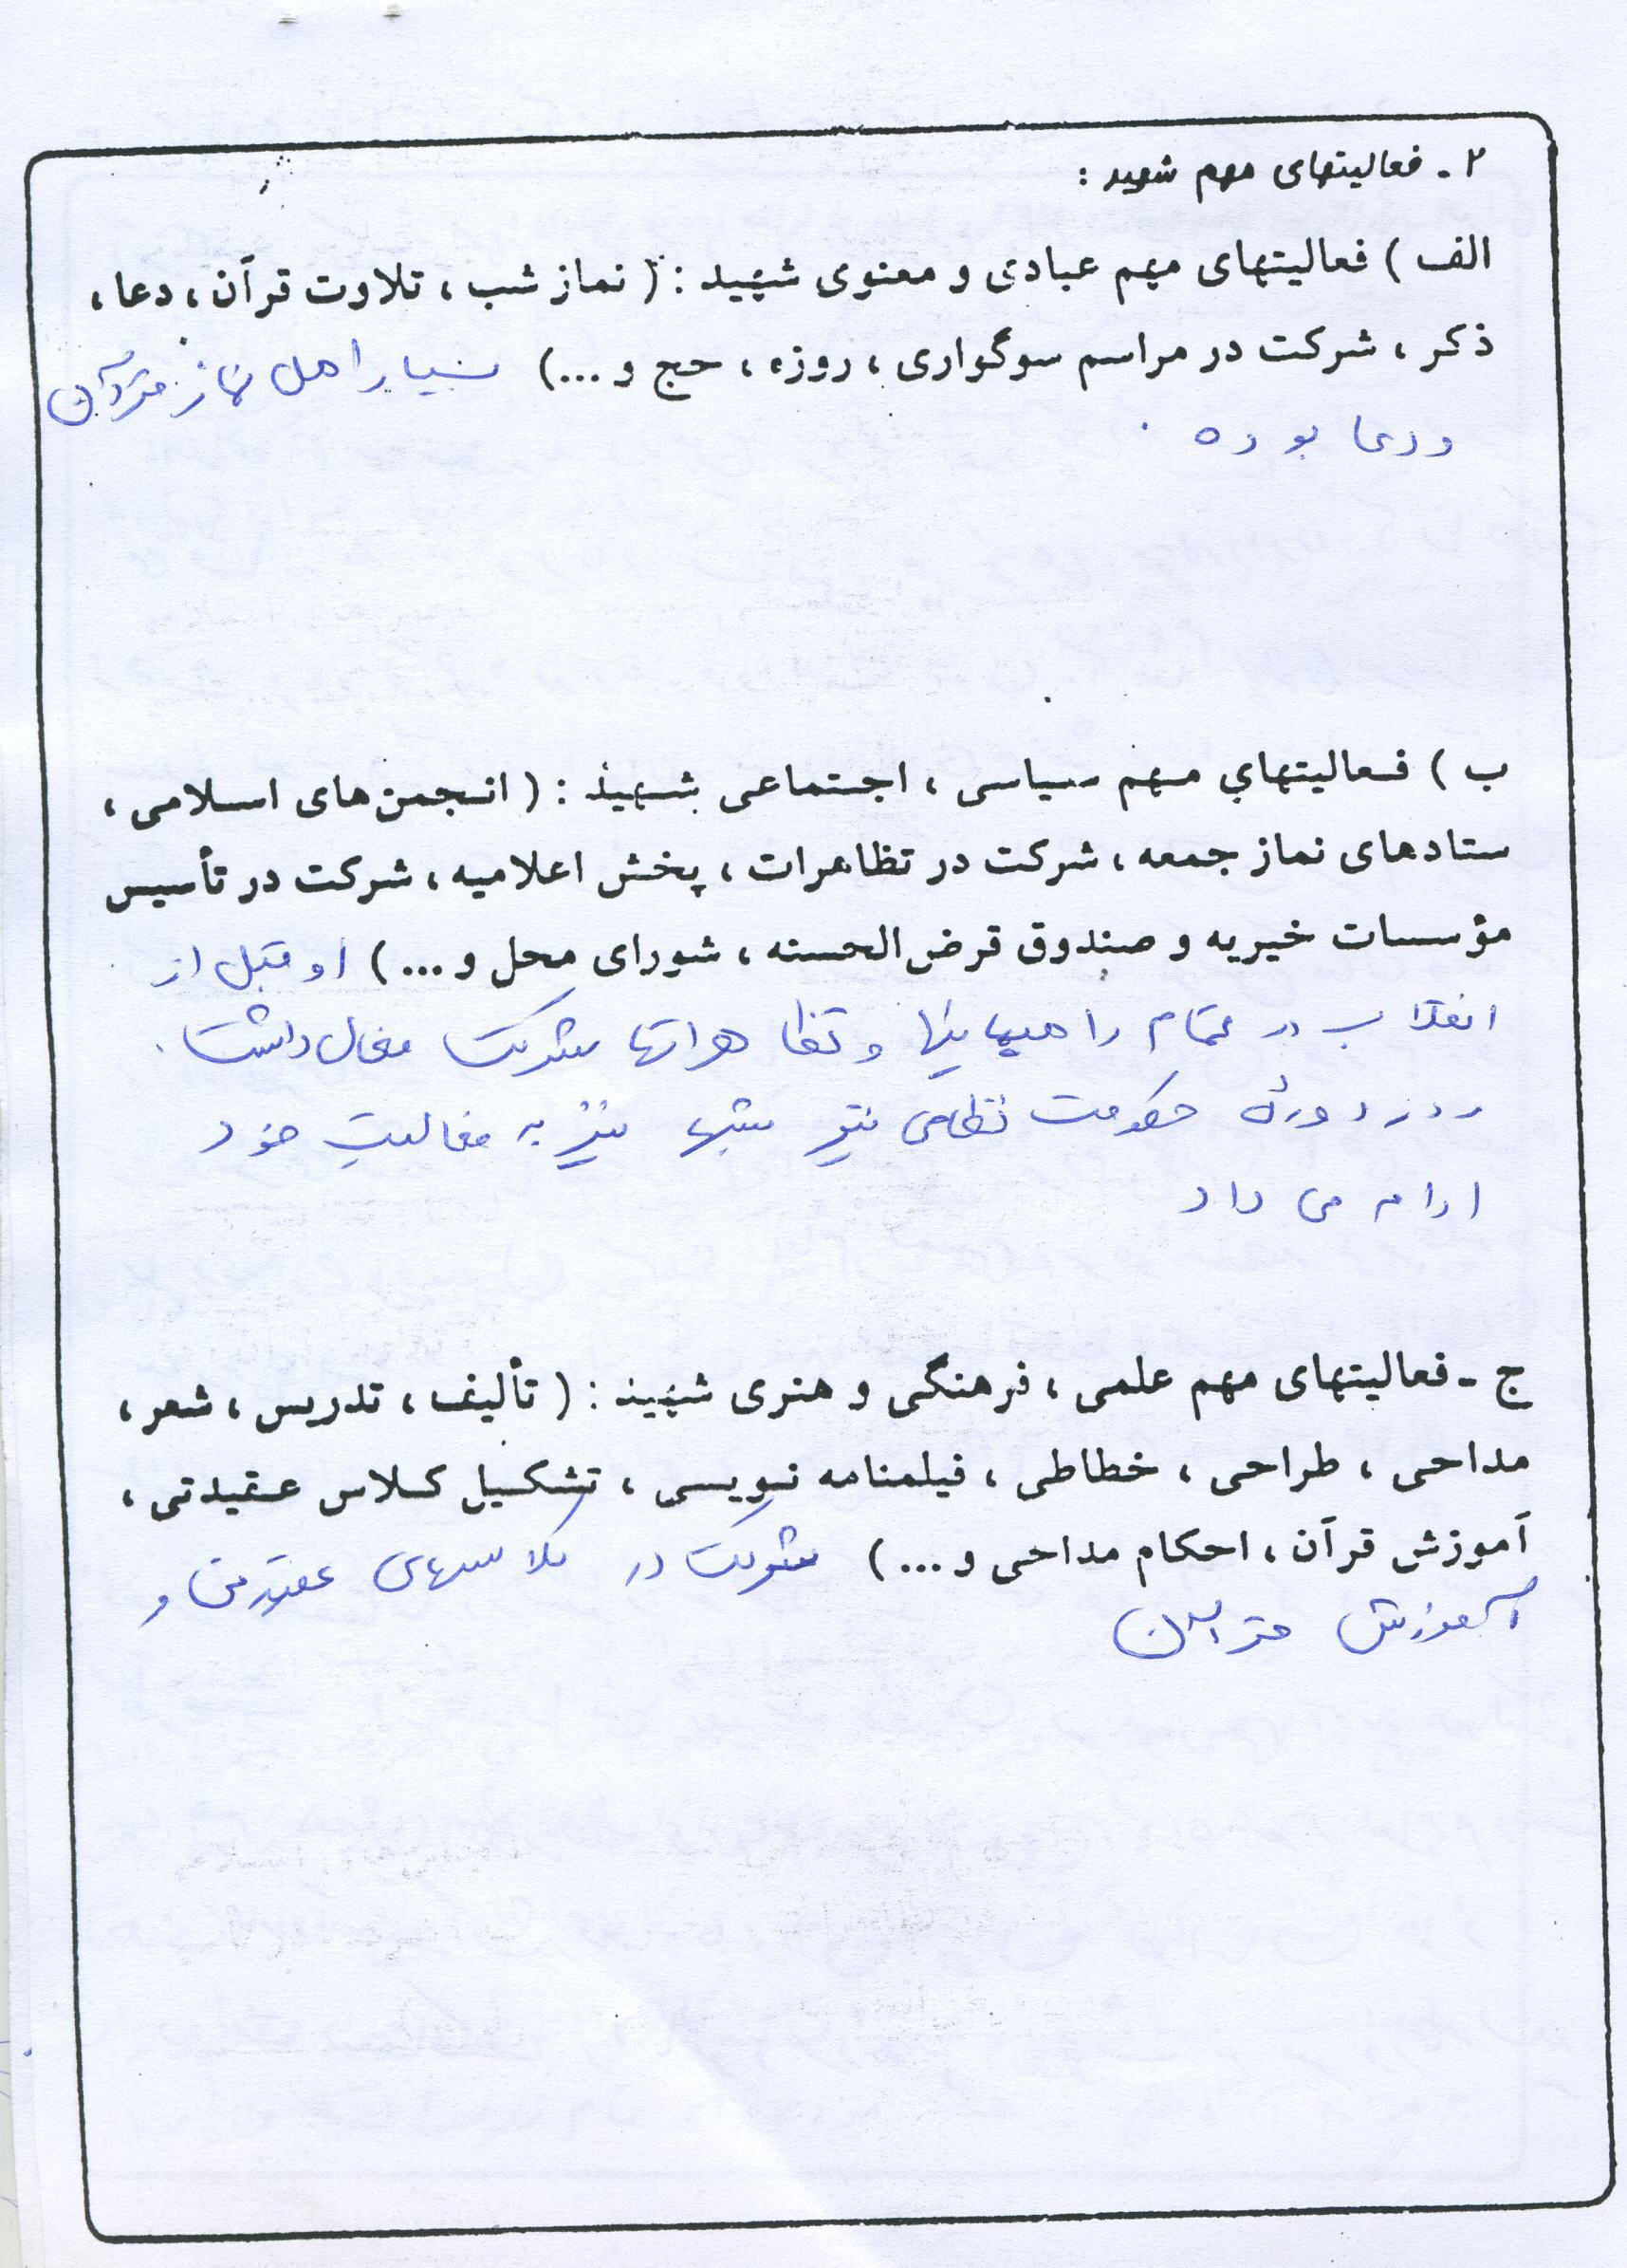 ۲ - فعالیتهای مهم شهید :
الف ) فعالیتهای مهم عبادی و معنوی شهید : ( نماز شب ، تلاوت قرآن ، دعا ،
ذکر ، شرکت در مراسم سوگواری ، روزه ، حج و ...) بسیار اهل نماز قرآن
ودعا بوده .
ب ) فعالیتهای مهم سیاسی ، اجتماعی شهید : ( انجمن‌های اسلامی ،
ستادهای نماز جمعه ، شرکت در تظاهرات ، پخش اعلامیه ، شرکت در تأسیس
مؤسسات خیریه و صندوق قرض‌الحسنه ، شورای محل و ...) او قبل از
انقلاب در تمام راهپیمایی‌ها و تظاهراتها شرکت فعال داشت .
در دورهٔ حکومت نظامی نیز شبها نیز به فعالیت خود
ادامه می داد
ج - فعالیتهای مهم علمی ، فرهنگی و هنری شهید : ( تألیف ، تدریس ، شعر ،
مداحی ، طراحی ، خطاطی ، فیلمنامه نویسی ، تشکیل کلاس عقیدتی ،
آموزش قرآن ، احکام مداحی و ...) شرکت در کلاسهای عقیدتی و
آموزش قرآن